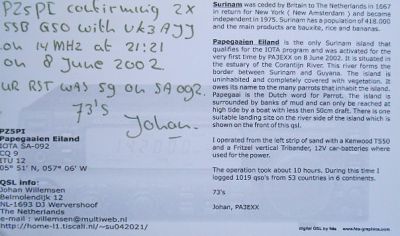 PZ5PI confirming 2x
SSB QSO with VK3AJJ
on 14 MHz at 21:21
on 8 June 2002.
UR RST was 59 on SA 092.
73's
Johan.
PZ5PI
Papegaaien Eiland
IOTA SA-092
CQ 9
ITU 12
05° 51' N, 057° 06' W
QSL info:
Johan Willemsen
Belmolendijk 12
NL-1693 DJ Wervershoof
The Netherlands
e-mail : willemsen@multiweb.nl
http://home-l1.tiscali.nl/~su042021/
Surinam was ceded by Britain to The Netherlands in 1667
in return for New York ( New Amsterdam ) and became
independent in 1975. Surinam has a population of 418.000
and the main products are bauxite, rice and bananas.
Papegaaien Eiland is the only Surinam island that
qualifies for the IOTA program and was activated for the
very first time by PA3EXX on 8 June 2002. It is situated
in the estuary of the Corantijn River. This river forms the
border between Surinam and Guyana. The island is
uninhabited and completely covered with vegetation. It
owes its name to the many parrots that inhabit the island.
Papegaai is the Dutch word for Parrot. The island is
surrounded by banks of mud and can only be reached at
high tide by a boat with less then 50cm draft. There is one
suitable landing site on the river side of the island which is
shown on the front of this qsl.
I operated from the left strip of sand with a Kenwood TS50
and a Fritzel vertical Tribander, 12V car-batteries where
used for the power.
The operation took about 10 hours. During this time I
logged 1019 qso's from 53 countries in 6 continents.
73's
Johan, PA3EXX
digital QSL by hs www.hs-graphics.com